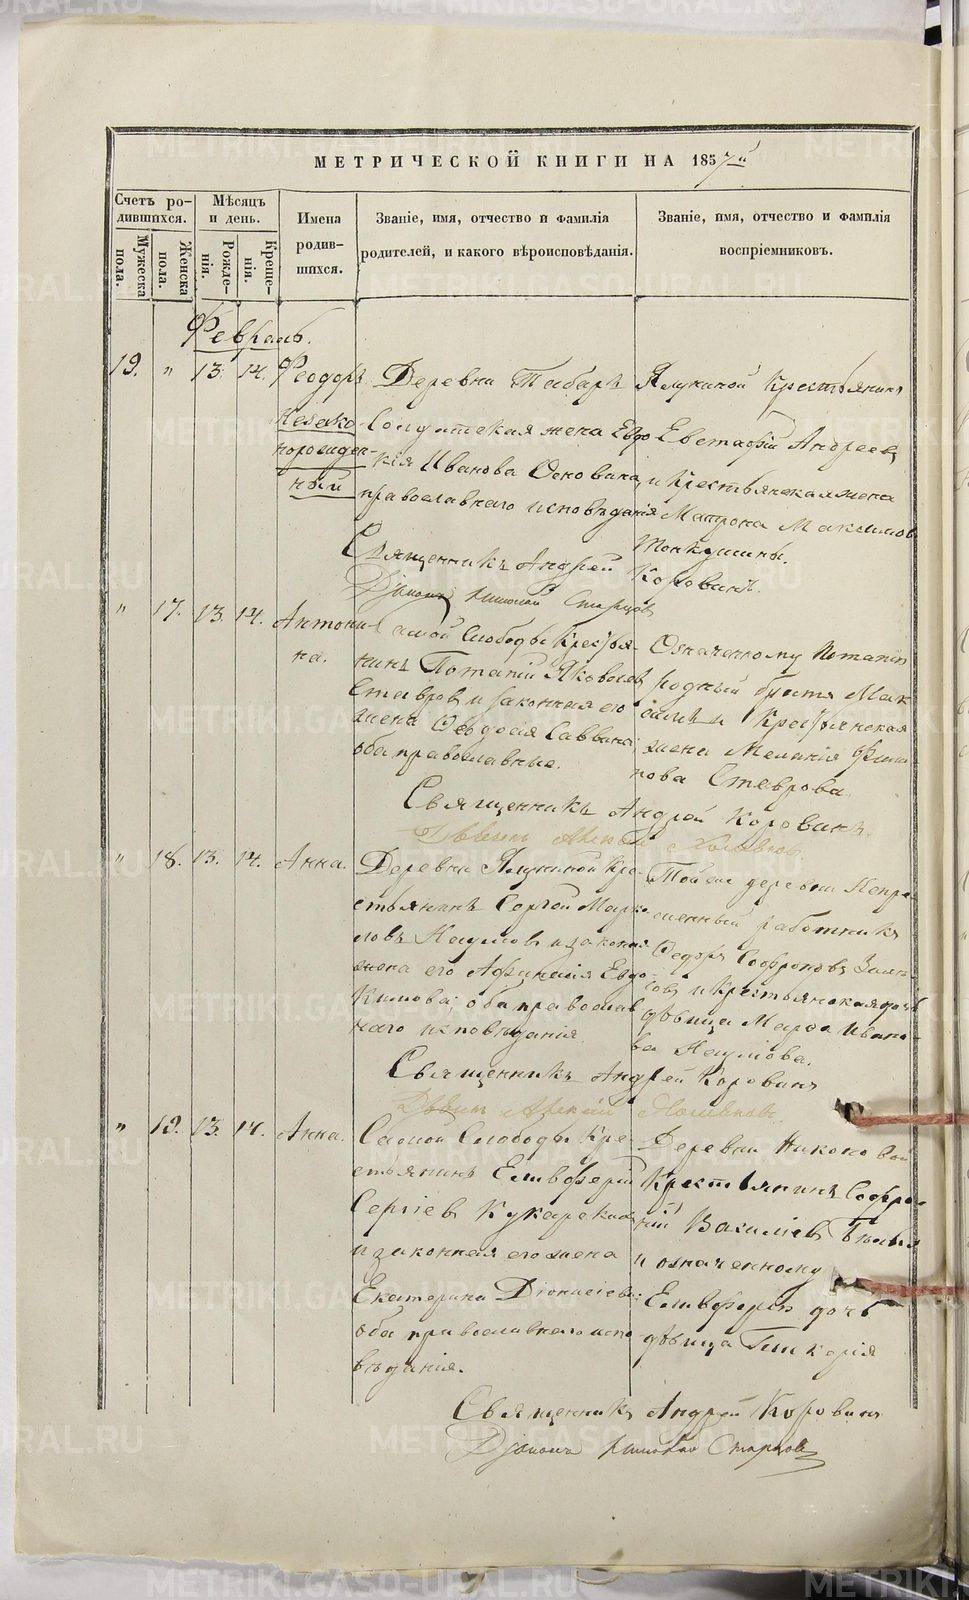 МЕТРИЧЕСКОЙ КНИГИ НА 1857й
Счетъ ро-
дившихся.
Мужеска
пола.
Женска
пола.
Мѣсяцъ
и день.
Рожде-
нія.
Креще-
нія.
Имена
родив-
шихся.
Званіе, имя, отчество и фамилія
родителей, и какого вѣроисповѣданія.
Званіе, имя, отчество и фамилія
воспріемниковъ.
Февраль.
19. " 13. 14. Феодоръ
незако
норожден-
ный
Деревни
Солдатская жена Евдо
кія Иванова
православнаго исповѣданія
Ялункиной Крестьянинъ
Евстафій Андреевъ
и Крестьянская жена
Матрона Максимов
Священникъ Андрей Коровинъ.
Діаконъ Николай Старцовъ
" 17. 13. 14. Антони-
на.
самой Слободы Крестья-
нинъ Потапій Яковлевъ
Ставров и законная его
жена Ѳеодосія Саввина
оба православные.
Означенному Потапію
родный братъ Мак
симъ и Крестьянская
жена Меланія
Ставрова
Священникъ Андрей Коровинъ.
" 18. 13. 14. Анна.
Деревни Ялункиной Кре-
стьянинъ Сергей Марке
ловъ Наумовъ и законная
жена его Евдо-
кимова; оба православ
наго исповѣданія
Той же деревни Непре-
менный работникъ
Ѳедоръ Софроновъ
и Крестьянская дочь
дѣвица Марѳа Ивано-
ва Наумова.
Священникъ Андрей Коровинъ
" 19. 13. 14. Анна.
Самой Слободы Кре-
стьянинъ Елевферій
Сергіев
и законная его жена
Екатерина Діонисіева;
оба православнаго испо
вѣданія.
Деревни
Крестьянинъ Софро-
ній Василіевъ
и означенному
Елевферію дочь
дѣвица Гликерія
Священникъ Андрей Коровинъ
Діаконъ Николай Старцовъ
METRIKI.GASO-URAL.RU